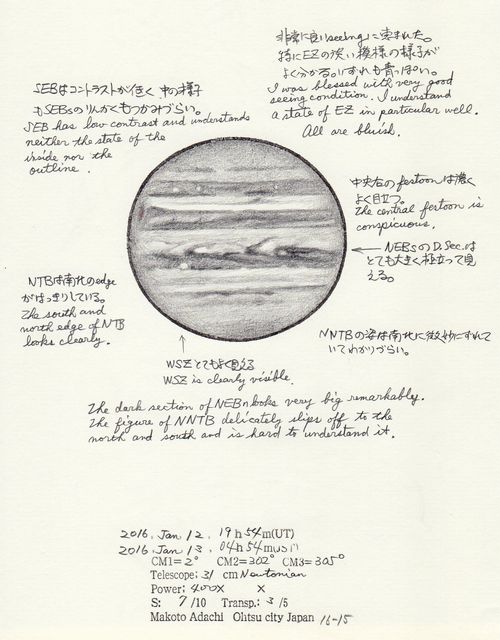 非常に良いseeingに恵まれた。
特にEZの淡い模様の様子が
よく分かる。いずれも青っぽい。
I was blessed with very good
seeing condition. I understand
a state of EZ in particular well.
All are bluish.
SEBはコントラストが低く 中の様子
もSEBsのりんかくもつかみづらい。
SEB has low contrast and understands
neither the state of the
inside nor the
outline.
中央右のfestoonは濃く
よく目立つ。
The central festoon is
conspicuous.
NEBsのD.Sec.は
とても大きく目立って見
える。
NTBは南北のedge
がはっきりしている。
The south and
north edge of NTB
looks clearly.
NNTBの姿は南北に微妙にずれて
いてわかりづらい。
WSZとてもよく見える
WSZ is clearly visible.
The dark section of NEBn looks very big remarkably.
The figure of NNTB delicately slips off to the
north and south and is hard to understand it.
2016. Jan 12. 19h 54m(UT)
2016. Jan 13. 04h 54m(JST)
CM1=2° CM2=302° CM3=305°
Telescope: 31 cm Newtonian
Power: 400X X
S: 7/10 Transp.: 3/5
Makoto Adachi Ohtsu city Japan 16-15